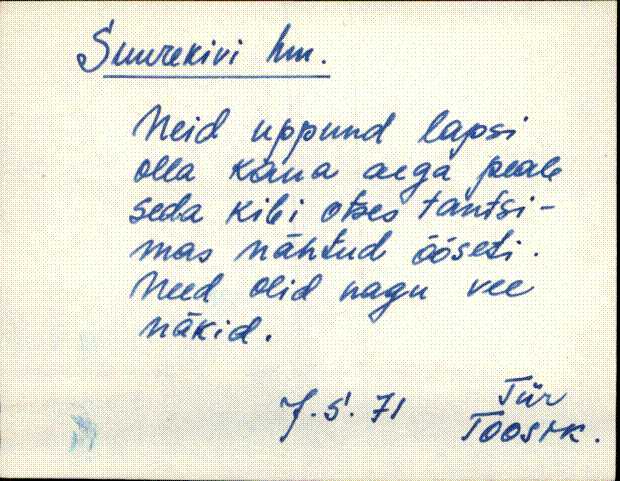 Suurekivi hm.
Neid uppund lapsi
olla kaua aega peale
seda kibi otses tantsi-
mas nähtud ööseti.
Need olid nagu vee
näkid.
7. 5. 71 Tiir
Toostk.